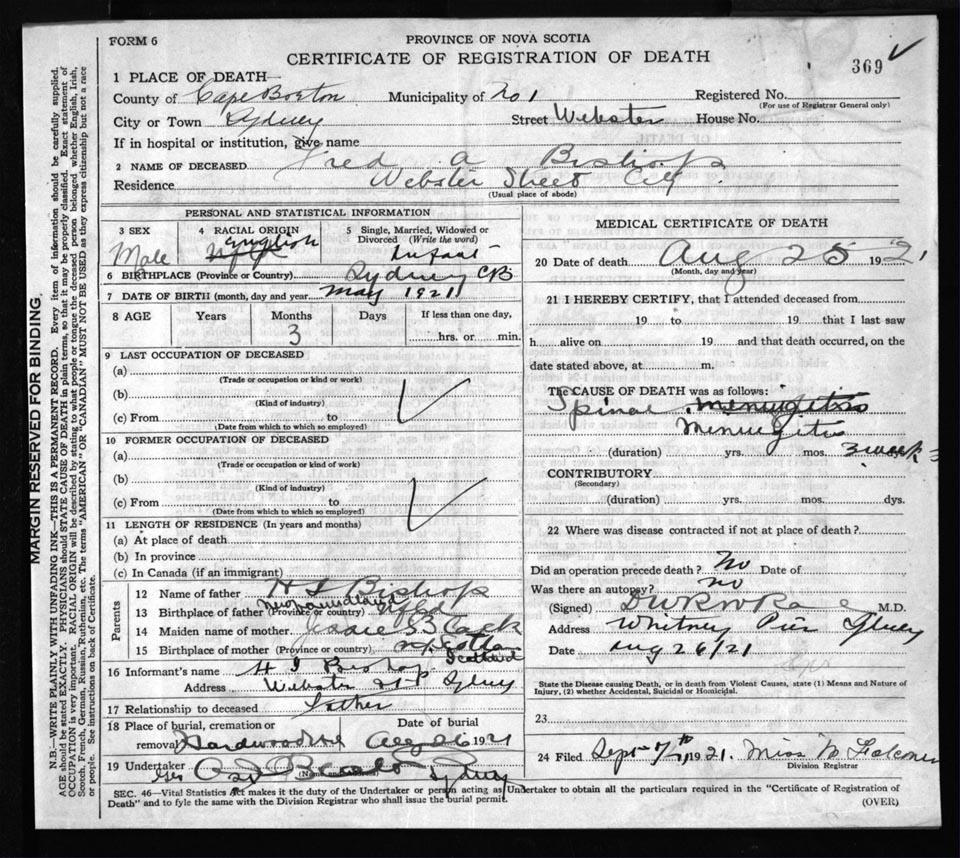 FORM 6
PROVINCE OF NOVA SCOTIA
CERTIFICATE OF REGISTRATION OF DEATH
369
MARGIN RESERVED FOR BINDING.
N.B.—WRITE PLAINLY WITH UNFADING INK—THIS IS A PERMANENT RECORD. Every item of information should be carefully supplied.
AGE should be stated EXACTLY. PHYSICIANS should STATE CAUSE OF DEATH in plain terms, so that it may be properly classified. Exact statement of
OCCUPATION is very important. RACIAL ORIGIN will be described by stating to what people or tongue the deceased person belonged whether English, Irish,
Scotch, French, German, Russian, Ruthenian, etc. The terms "AMERICAN" OR "CANADIAN" MUST NOT BE USED as they express citizenship but not a race
or people. See instructions on back of Certificate.
1 PLACE OF DEATH—
County of Cape Breton Municipality of No 1 Registered No.
(For use of Registrar General only)
City or Town Sydney Street Webster House No.
If in hospital or institution, give name
2 NAME OF DECEASED Fred a Bishop
Residence Webster Street City
(Usual place of abode)
PERSONAL AND STATISTICAL INFORMATION
3 SEX Male
4 RACIAL ORIGIN English
5 Single, Married, Widowed or Divorced (Write the word) Infant
6 BIRTHPLACE (Province or Country) Sydney CB
7 DATE OF BIRTH (month, day and year) May 1921
8 AGE Years Months 3 Days If less than one day, hrs. or min.
9 LAST OCCUPATION OF DECEASED
(a)
(Trade or occupation or kind or work)
(b)
(Kind of industry)
(c) From to
(Date from which to which so employed)
10 FORMER OCCUPATION OF DECEASED
(a)
(Trade or occupation or kind of work)
(b)
(Kind of industry)
(c) From to
(Date from which to which so employed)
11 LENGTH OF RESIDENCE (In years and months)
(a) At place of death
(b) In province
(c) In Canada (if an immigrant)
Parents
12 Name of father Bishop
13 Birthplace of father (Province or country) Newfoundland Nfld
14 Maiden name of mother Jessie
15 Birthplace of mother (Province or country) Scotland
16 Informant's name Bishop
Address Webster St Sydney
17 Relationship to deceased Father
18 Place of burial, cremation or removal Hardwood Date of burial Aug 26 1921
19 Undertaker Sydney
(Name and address)
MEDICAL CERTIFICATE OF DEATH
20 Date of death Aug 25 1921
(Month, day and year)
21 I HEREBY CERTIFY, that I attended deceased from
19 to 19 that I last saw
h alive on 19 and that death occurred, on the
date stated above, at m.
The CAUSE OF DEATH was as follows:
Spinal
Meningitis
(duration) yrs. mos. 3 weeks
CONTRIBUTORY
(Secondary)
(duration) yrs. mos. dys.
22 Where was disease contracted if not at place of death?
Did an operation precede death? No Date of
Was there an autopsy? no
(Signed) M.D.
Address Whitney Pier Sydney
Date Aug 26/21
State the Disease causing Death, or in death from Violent Causes, state (1) Means and Nature of
Injury, (2) whether Accidental, Suicidal or Homicidal.
23
24 Filed Sept 7th 1921. Miss M Falconer
Division Registrar
SEC. 46—Vital Statistics Act makes it the duty of the Undertaker or person acting as Undertaker to obtain all the particulars required in the "Certificate of Registration of
Death" and to fyle the same with the Division Registrar who shall issue the burial permit.
(OVER)